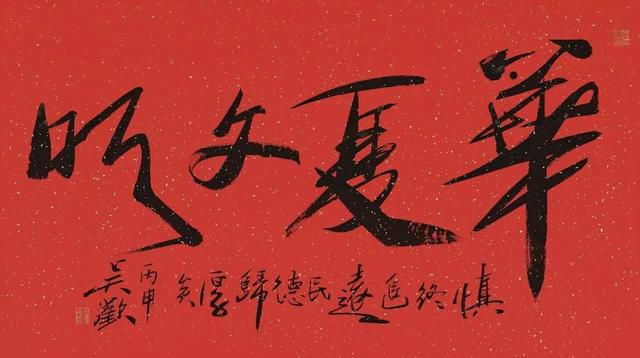 華夏文明
慎終追遠民德歸厚矣
丙申
吳歡